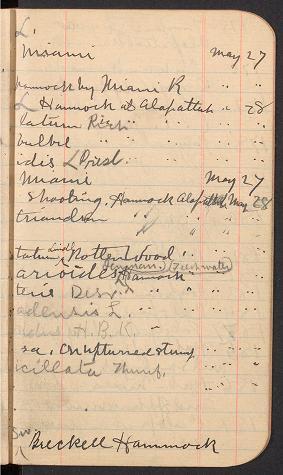 L.
Miami May 27
" "
hammock by Miami R " "
L Hammock at Alapattah " 28
latum Rich " "
bulbil " "
idis L Prest " "
Miami May 27
Shooting, Hammock Alapattah May 28
triandrum " "
" "
tatum Lindl Rotten Wood " "
arioides Hammock (Freshwater)
teris Desv. " "
adensis L. " "
H.B.K. " "
sa, on upturned stump " "
icillata Thunb. " "
" "
Brickell Hammock